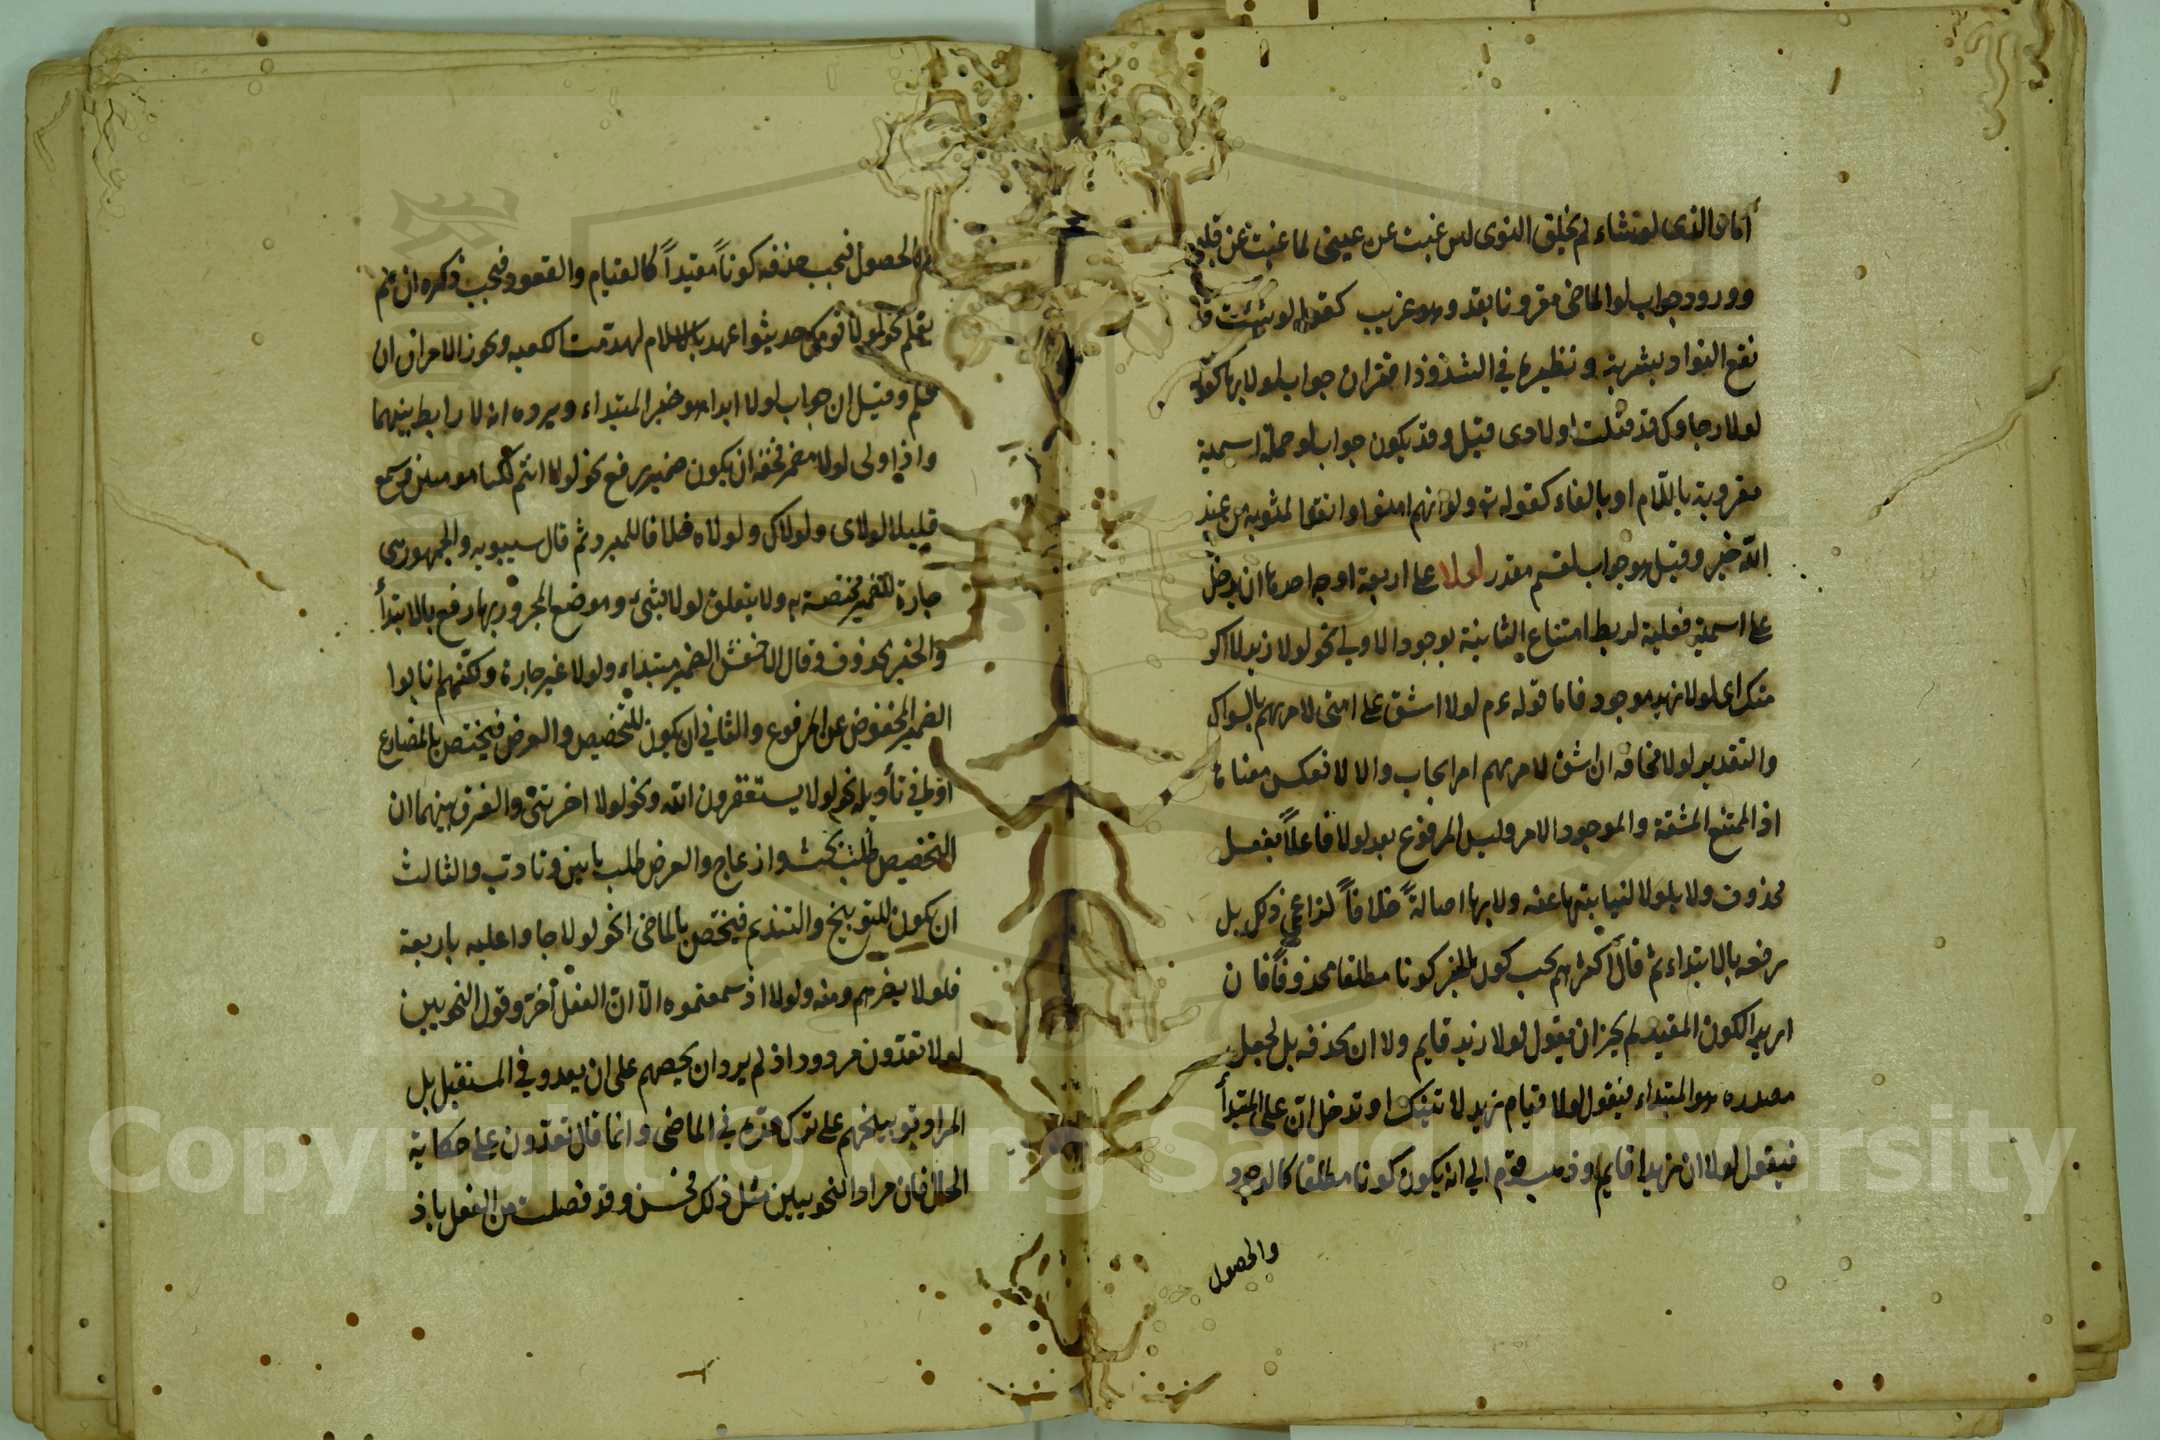 أما والذى لو تشاء لم يخلق النوى لىن غبت عن عينى لما غبت عن قلبى
وورود جواب لو الماضى مقرونا بقد وهو غريب كقوله لو شئت قد
نقع الفؤاد بشربة ونظيره في الشذوذ اقتران جواب لولا بها كقوله
لولا رجاوك قد قتلت اولادى قيل وقد يكون جواب لو جملة اسمية
مقرونة باللام او بالفاء كقوله تع ولو انهم امنوا واتقوا لمثوبة من عند
الله خير وقيل هو جواب لقسم مقدر لولا على اربعة اوجه احدها ان يدخل
على اسمية ففعلية لربط امتناع الثانية بوجود الاولى نحو لولا زيد لاكر
متك اى لولا زيد موجود فاما قوله عم لولا اشق على امتى لامرتهم بالسواك
والتقدير لولا مخافة ان اشق لامرتهم امر ايجاب والا لانعكس معناها
اذ الممتنع المشقة والموجود الامر وليس المرفوع بعد لولا فاعلاً بفعل
محذوف ولا بلولا لنيابتها عنه ولا بها اصالةً خلافاً لزاعمى ذلك بل
رفعه بالابتداء ثم قال اكثرهم يجب كون الخبر كونا مطلقا محذوفاً فان
اريد الكون المقيد لم يجز ان يقول لولا زيد قايم ولا ان يحذفه بل يجعل
مصدره هو المبتداء فيقول لولا قيام زيد لاتيتك او تدخل انّ على المبتدأ
فيقول لولا ان زيدا قايم وذهب قوم الى انه يكون كونا مطلقا كالوجود
والحصول
والحصول فيجب حذفه كوناً مقيداً كالقيام والقعود فيجب ذكره ان لم
يعلم نحو لولا قومك حديثوا عهد بالاسلام لهدمت الكعبه ويجوز الامران ان
علم وقيل ان جواب لولا ابدا هو خبر المبتداء ويرده انه لا رابط بينهما
واذا ولى لولا مضمر فحقه ان يكون ضمير رفع نحو لولا انتم لكنا مومنين وسمع
قليلا لولاى ولولاك ولولاه خلافا للمبرد ثم قال سيبويه والجمهور هى
جارة للضمير مختصة به ولا يتعلق لولا بشىء وموضع المجرور بها رفع بالابتدأ
والخبر محذوف وقال الاخفش الضمير مبتداء ولولا غير جارة ولكنهم انابوا
الضمير المخفوض عن المرفوع والثاني ان يكون للتخضيض والعرض فيختص بالمضارع
او في تأويله نحو لولا يستغفرون الله ونحو لولا اخرتنى والفرق بينهما ان
التخضيض طلب بحث وازعاج والعرض طلب بلين وتادب والثالث
ان يكون للتوبيخ والتنديم فيختص بالماضى نحو لولا جاوا عليه باربعة
فلولا نصرهم ومنه ولولا اذ سمعتموه الّا انّ الفعل أخر وقول النحويين
لولا تعدّون مردود اذ لم يرد ان يحضهم على ان يعدو في المستقبل بل
المراد توبيخهم على ترك عده في الماضى وانما قال تعدّون على حكاية
الحال فان مراد النحويين مثل ذلك فحسن وقد فصلت من الفعل باذ